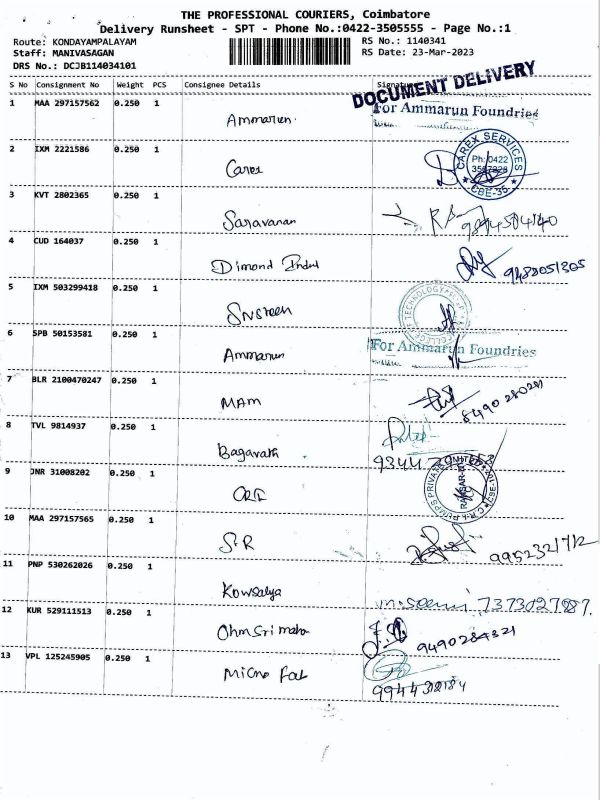 THE PROFESSIONAL COURIERS, Coimbatore
Delivery Runsheet - SPT - Phone No.:0422-3505555 - Page No.:1
Route: KONDAYAMPALAYAM
RS No.: 1140341
Staff: MANIVASAGAN
RS Date: 23-Mar-2023
DRS No.: DCJB114034101
DOCUMENT DELIVERY
S No Consignment No Weight PCS Consignee Details Signature
1 MAA 297157562 0.250 1 Ammarun
For Ammarun Foundries
2 IXM 2221586 0.250 1 Carex
CAREX SERVICES
Ph: 0422
CBE-35
3 KVT 2802365 0.250 1 Saravanan
4 CUD 164037 0.250 1 Dimond Indul
9488051305
5 IXM 503299418 0.250 1
6 SPB 50153581 0.250 1 Ammarun
For Ammarun Foundries
7 BLR 2100470247 0.250 1 MAM
8490280281
8 TVL 9814937 0.250 1 Bagavath
9 JNR 31008202 0.250 1 CRI
10 MAA 297157565 0.250 1 S.R
11 PNP 530262026 0.250 1 Kowsalya
7373027987.
12 KUR 529111513 0.250 1 Ohm Sri maha
9490284321
13 VPL 125245905 0.250 1 Micro Fab